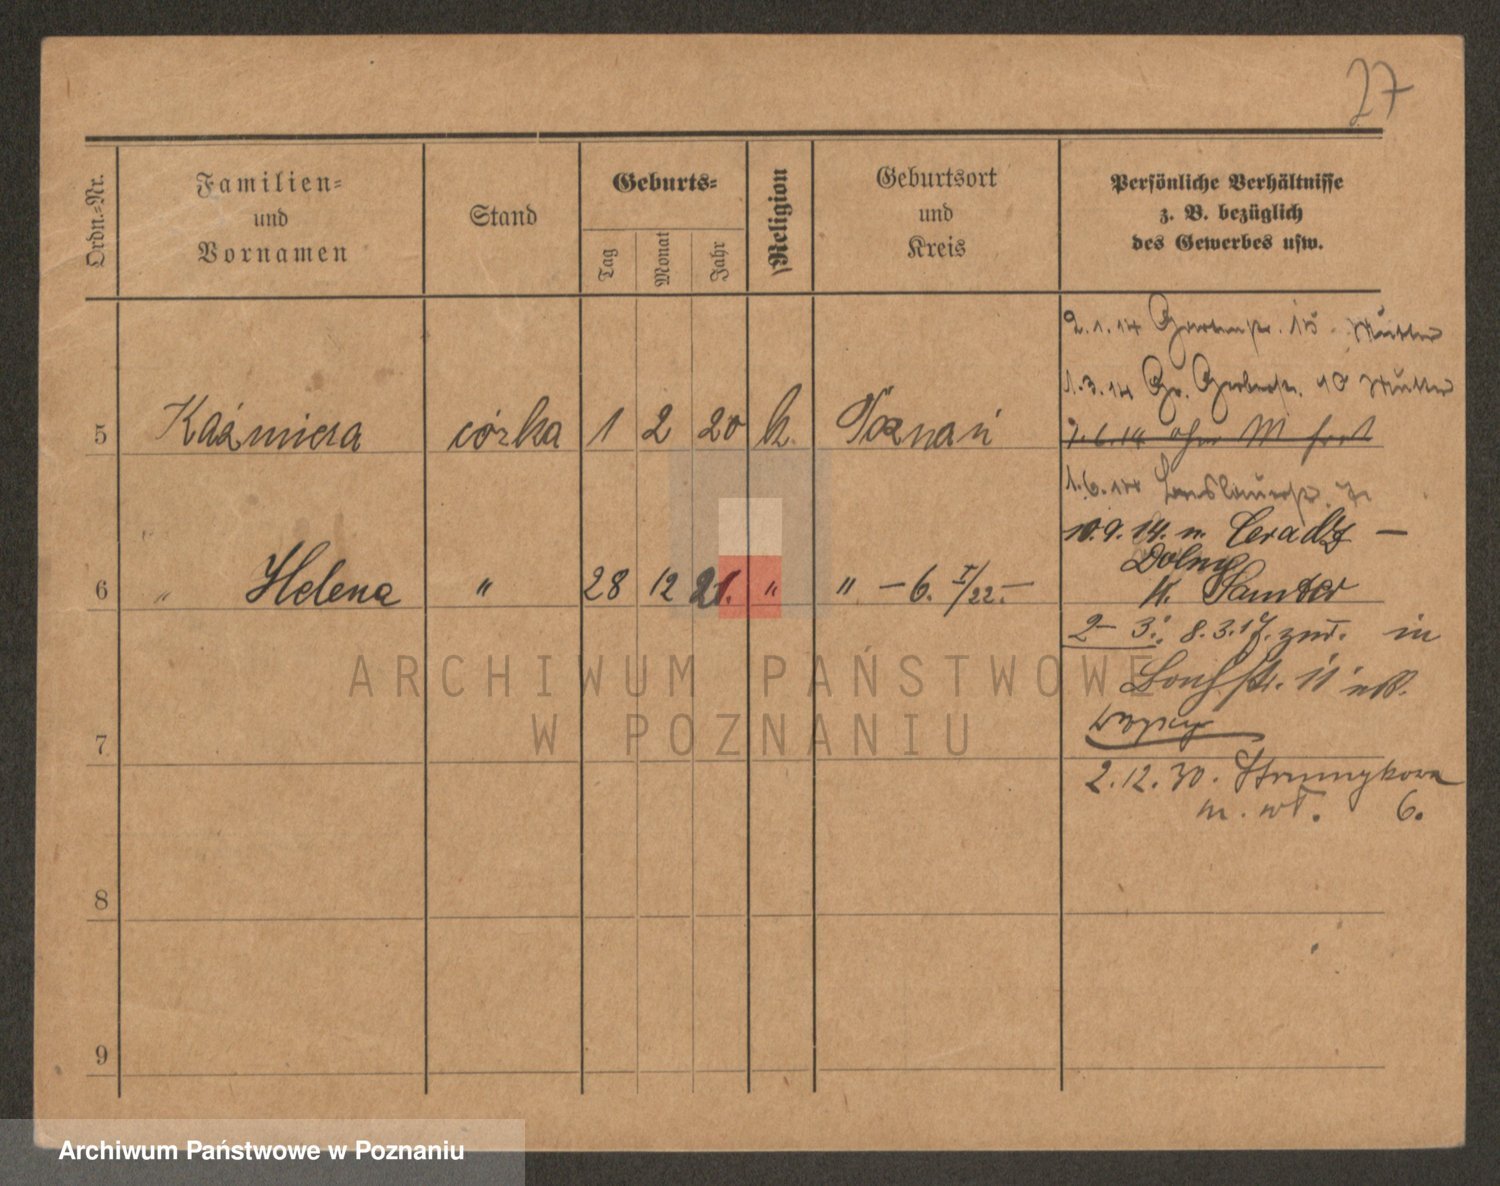 27
Ordn.=Nr.
Familien=
und
Vornamen
Stand
Geburts=
Tag
Monat
Jahr
Religion
Geburtsort
und
Kreis
Persönliche Verhältnisse
z. B. bezüglich
des Gewerbes usw.
2.1.14 Gartenstr. 15 Mutter
1.3.14 Gr. Gerberstr. 10 Mutter
5 Kaźmiera córka 1 2 20 k. Poznań
1.6.14
10.9.14. n. Ceradz –
Dolny
6 " Helena " 28 12 21. " " – 6. I/22. –
K. Samter
2 – 3: 8.3.17. zur. in
11
7
2.12.30. Strumykowa
m. wł. 6.
8
9
ARCHIWUM PAŃSTWOWE
W POZNANIU
Archiwum Państwowe w Poznaniu